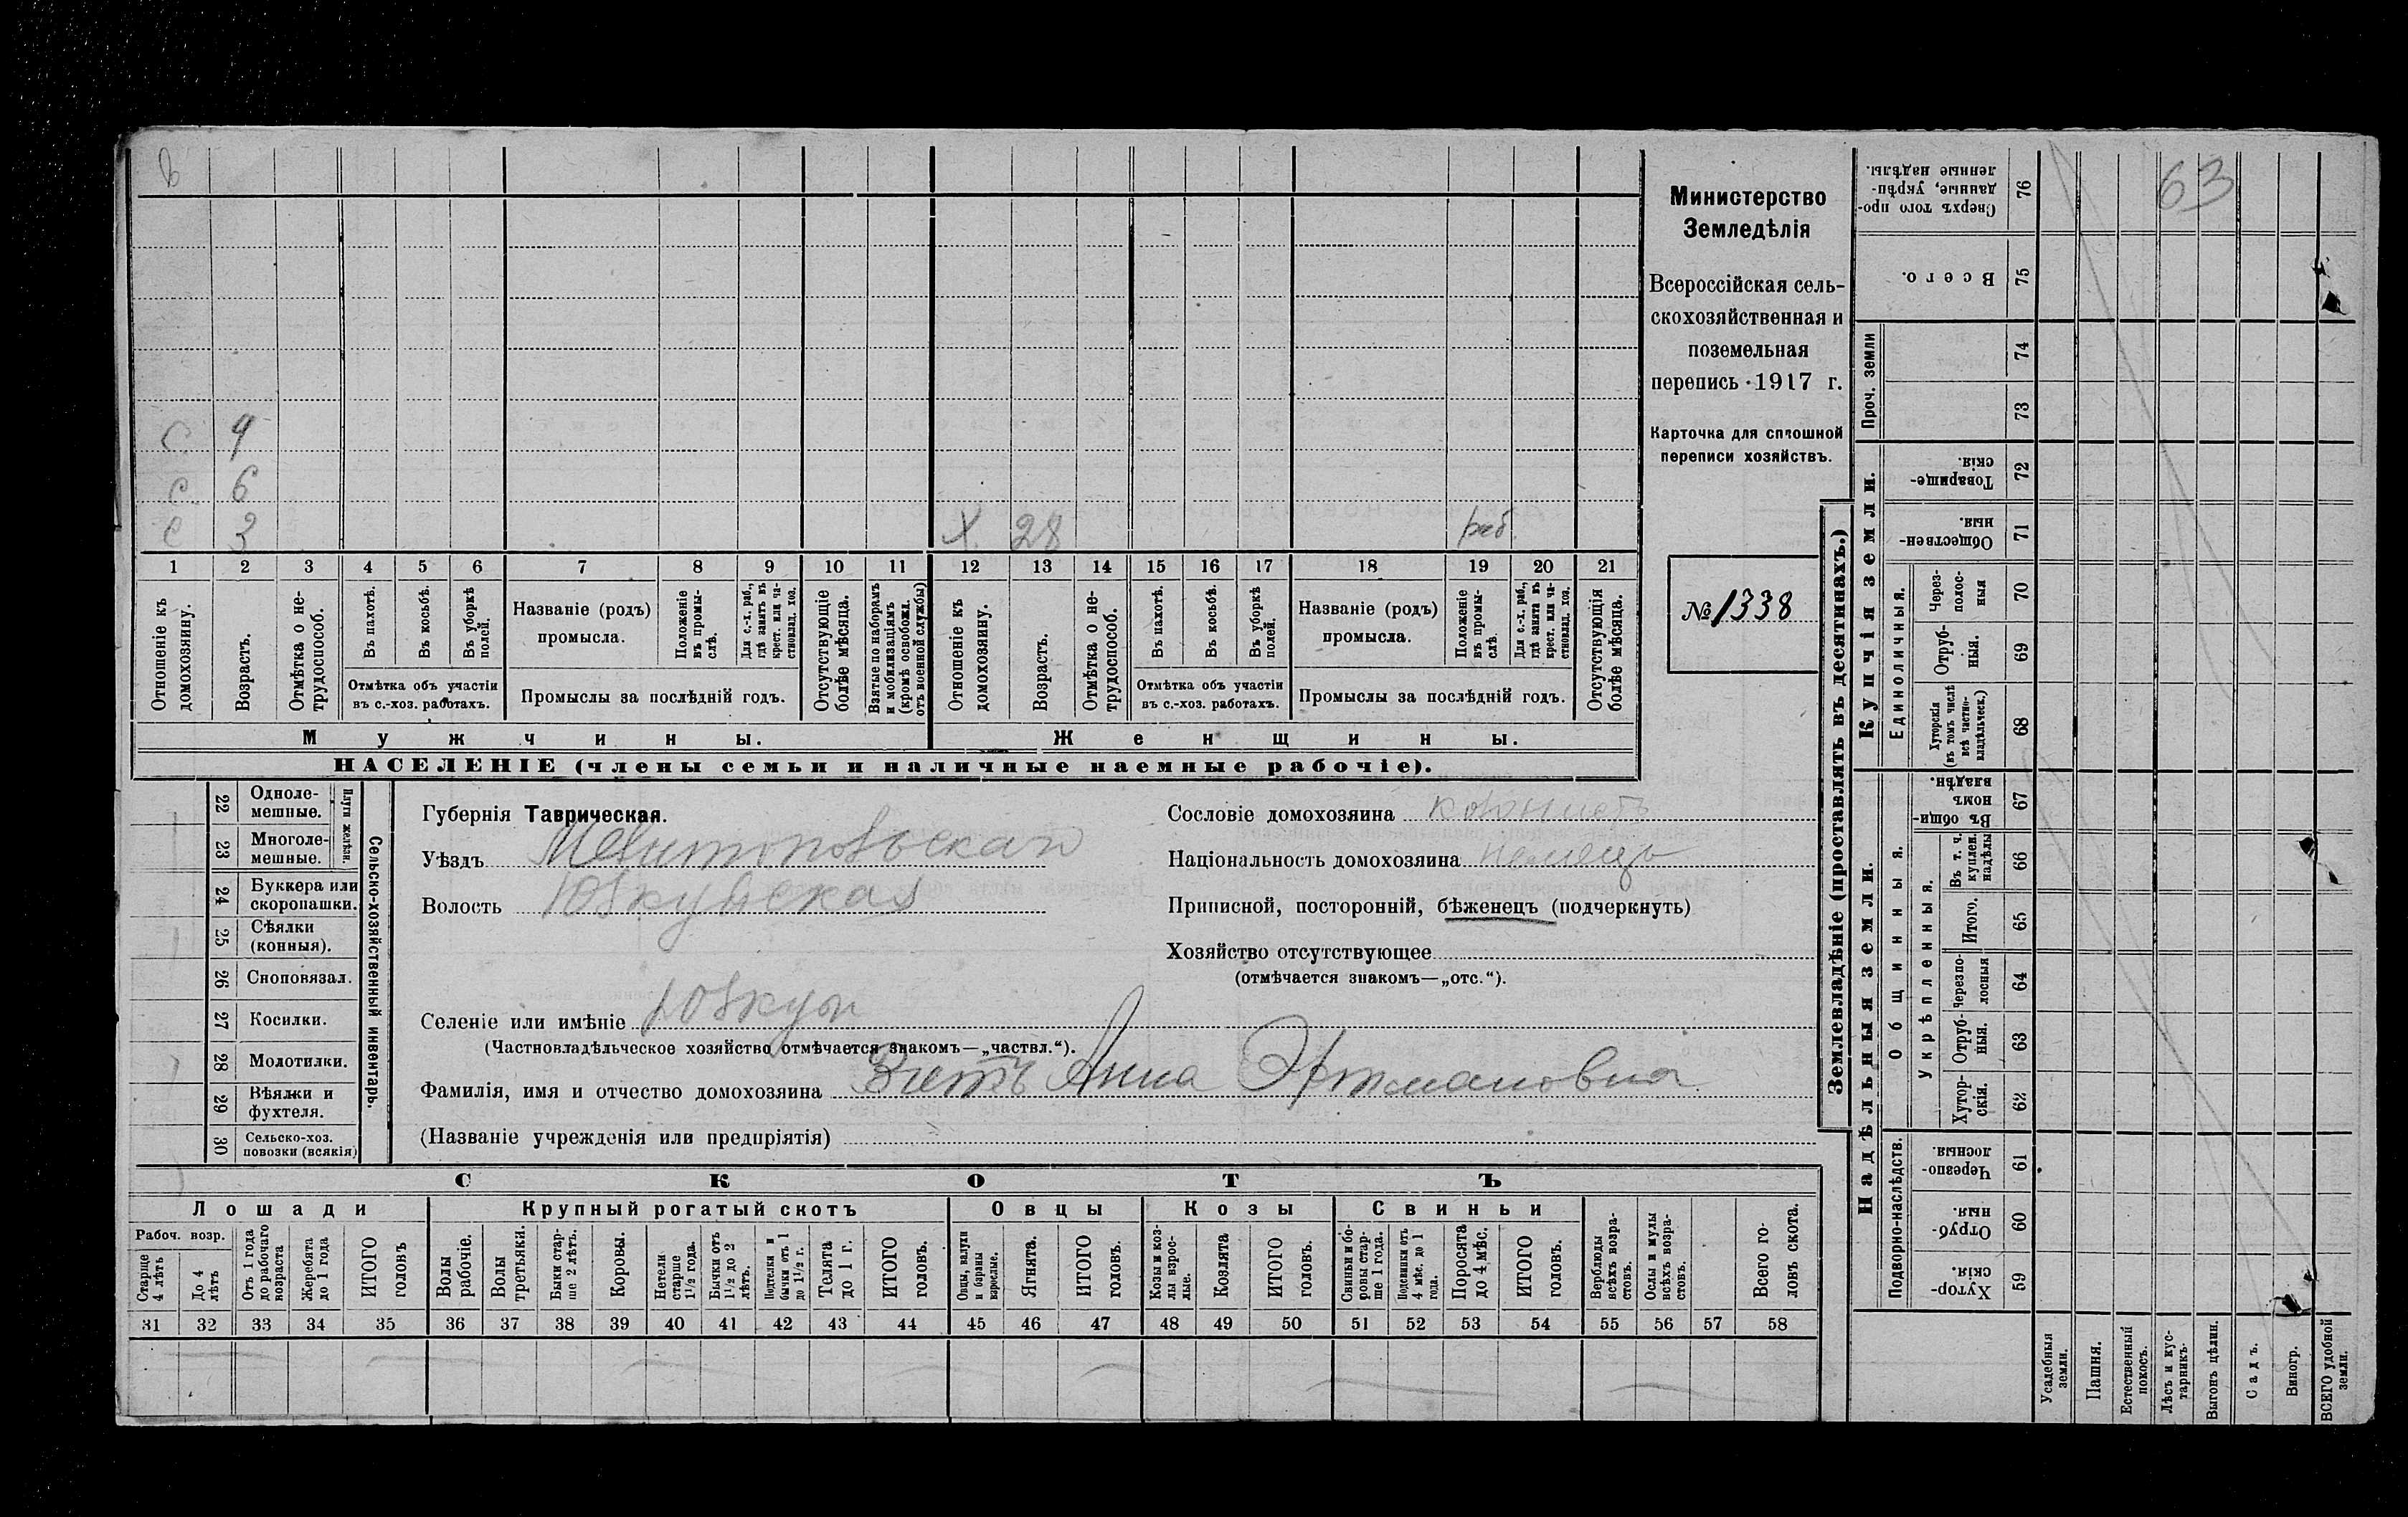 63
С 9
С 6
С 3
Х. 28 раб.
1 2 3 4 5 6 7 8 9 10 11 12 13 14 15 16 17 18 19 20 21
Отношеніе къ домохозяину.
Возрастъ.
Отмѣтка о нетрудоспособ.
Въ пахотѣ.
Въ косьбѣ.
Въ уборкѣ полей.
Отмѣтка объ участіи
въ с.-хоз. работахъ.
Названіе (родъ)
промысла.
Положеніе въ промыслѣ.
Для с.-х. раб., гдѣ занятъ въ крест. или частновлад. хоз.
Промыслы за послѣдній годъ.
Отсутствующіе болѣе мѣсяца.
Взятые по наборамъ и мобилизаціямъ (кромѣ освобожд. отъ военной службы)
Отношеніе къ домохозяину.
Возрастъ.
Отмѣтка о нетрудоспособ.
Въ пахотѣ.
Въ косьбѣ.
Въ уборкѣ полей.
Отмѣтка объ участіи
въ с.-хоз. работахъ.
Названіе (родъ)
промысла.
Положеніе въ промыслѣ.
Для с.-х. раб., гдѣ занята въ крест. или частновлад. хоз.
Промыслы за послѣдній годъ.
Отсутствующія болѣе мѣсяца.
Мужчины.
Женщины.
НАСЕЛЕНІЕ (члены семьи и наличные наемные рабочіе).
Министерство
Земледѣлія
Всероссійская сель-
скохозяйственная и
поземельная
перепись 1917 г.
Карточка для сплошной
переписи хозяйствъ.
№ 1338
Сельско-хозяйственный инвентарь.
Плуги желѣзн.
22 Одноле-
мешные.
23 Многоле-
мешные.
24 Буккера или
скоропашки.
25 Сѣялки
(конныя).
26 Сноповязал.
27 Косилки.
28 Молотилки.
29 Вѣялки и
фухтеля.
30 Сельско-хоз.
повозки (всякія)
Губернія Таврическая.
Уѣздъ Мелитопольскаго
Волость Юзкуйская
Селеніе или имѣніе Юзкуи
(Частновладѣльческое хозяйство отмѣчается знакомъ—„частвл.“).
Фамилія, имя и отчество домохозяина Анна Эртмановна
(Названіе учрежденія или предпріятія)
Сословіе домохозяина колонистъ
Національность домохозяина немецъ
Приписной, посторонній, бѣженецъ (подчеркнуть)
Хозяйство отсутствующее
(отмѣчается знакомъ—„отс.“).
СКОТЪ
Лошади
Рабоч. возр.
Старше 4 лѣтъ
До 4 лѣтъ
Отъ 1 года до рабочаго возраста
Жеребята до 1 года
ИТОГО головъ
Крупный рогатый скотъ
Волы рабочіе.
Волы третьяки.
Быки старше 2 лѣтъ.
Коровы.
Нетели старше 1½ года.
Бычки отъ 1½ до 2 лѣтъ.
Подтелки и бычки отъ 1 до 1½ г.
Телята до 1 г.
ИТОГО головъ.
Овцы
Овцы, валухи и бараны взрослые.
Ягнята.
ИТОГО головъ.
Козы
Козы и козлы взрослые.
Козлята
ИТОГО головъ.
Свиньи
Свиньи и боровы старше 1 года.
Подсвинки отъ 4 мѣс. до 1 года.
Поросята до 4 мѣс.
ИТОГО головъ.
Верблюды всѣхъ возрастовъ.
Ослы и мулы всѣхъ возрастовъ.
Всего головъ скота.
31 32 33 34 35 36 37 38 39 40 41 42 43 44 45 46 47 48 49 50 51 52 53 54 55 56 57 58
Землевладѣніе (проставлять въ десятинахъ.)
Купчія земли.
Надѣльныя земли.
Сверхъ того проданные, укрѣпленные надѣлы. 76
Всего. 75
Проч. земли
74
73
Товарищескія. 72
Общественныя. 71
Единоличныя.
Черезполосныя 70
Отрубныя. 69
Хуторскія (въ томъ числѣ всѣ частновладѣльческ.) 68
Общинныя.
Въ общинномъ владѣн. 67
Укрѣпленныя.
Въ т. ч. куплен. надѣлы 66
Итого. 65
Черезполосныя 64
Отрубныя. 63
Хуторскія. 62
Подворно-наслѣдств.
Черезполосныя. 61
Отрубныя. 60
Хуторскія. 59
Усадебныя земли.
Пашня.
Естественный покосъ.
Лѣсъ и кустарникъ.
Выгонъ цѣлин.
Садъ.
Виногр.
ВСЕГО удобной земли.